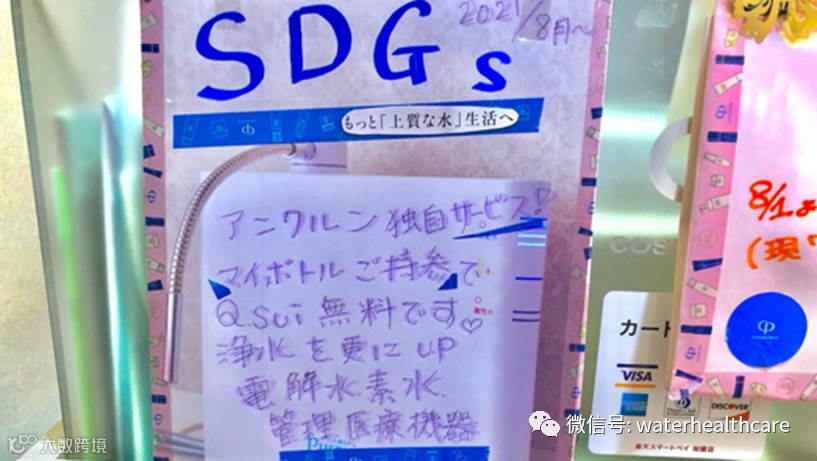 SDGs
2021/8月~
もっと「上質な水」生活へ
アンクルン独自サービス!
マイボトルご持参で
Q.Sui無料です♡
浄水を更にUP
電解水素水
管理医療機器
酸性水
8/1よ
(現
カード
VISA
DISCOVER
楽天スマートペイ 加盟店
COS
微信号: waterhealthcare
大数跨境